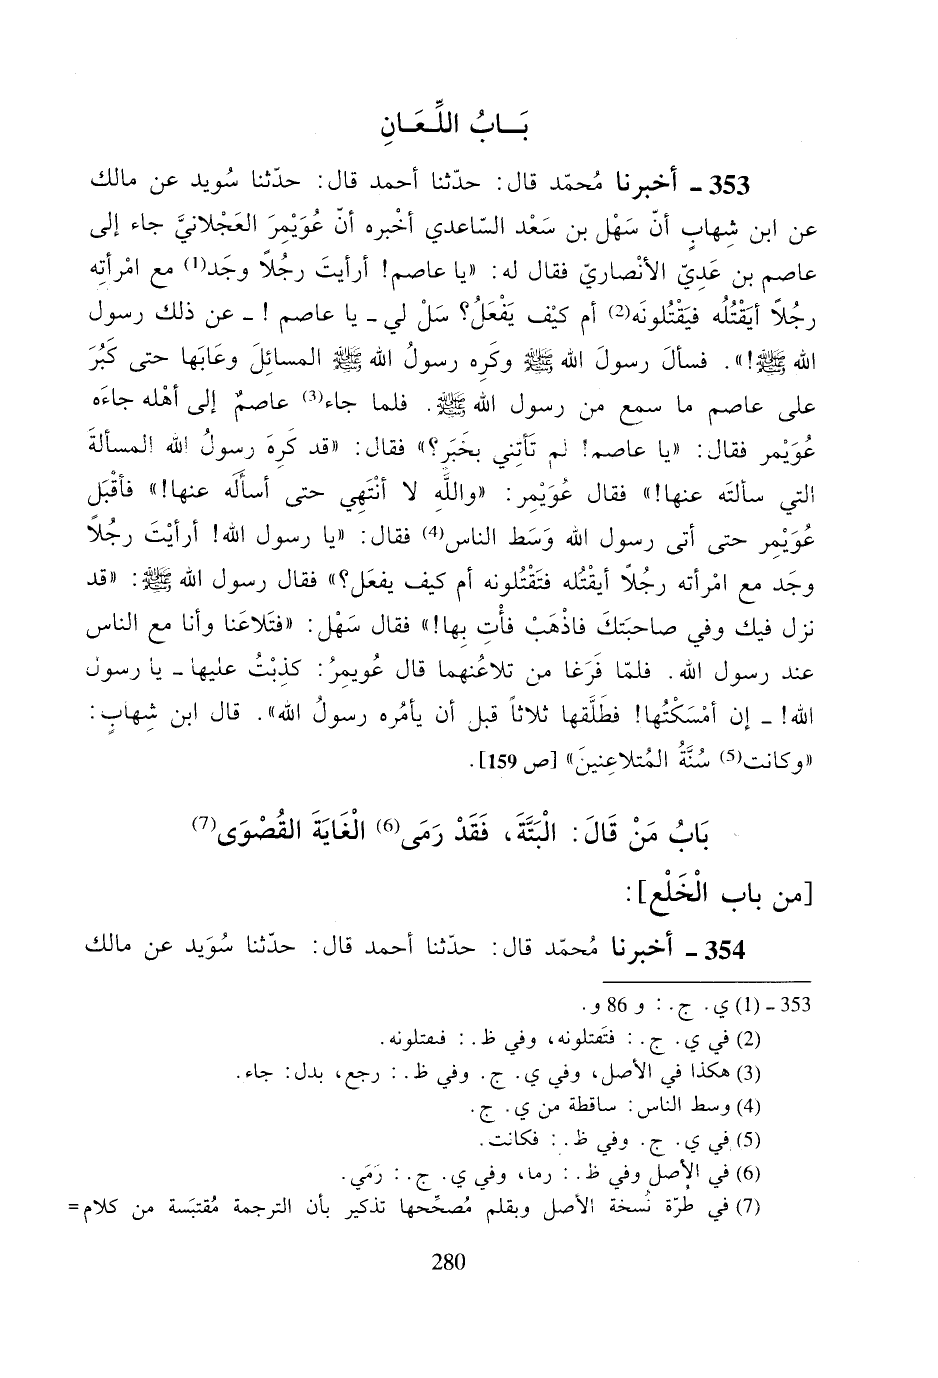 بَـابُ اللِّـعَـانِ
353 ـ أخبرنا مُحمّد قال: حدّثنا أحمد قال: حدّثنا سُويد عن مالك
عن ابن شِهابٍ أنّ سَهْل بن سَعْد السّاعدي أخْبره أنّ عُوَيْمِرَ العَجْلانيَّ جاء إلى
عاصم بن عَدِيّ الأنْصاريّ فقال له: «يا عاصم! أرأيتَ رجُلاً وجَد(1) مع امْرأتِه
رجُلاً أيَقْتُلُه فيَقْتُلونَه(2) أم كيْف يَفْعَلُ؟ سَلْ لي ـ يا عاصم ! ـ عن ذلك رسول
الله ﷺ!». فسألَ رسولَ الله ﷺ وكَرِه رسولُ الله ﷺ المسائلَ وعَابَها حتى كَبُرَ
على عاصم ما سمع من رسول الله ﷺ. فلما جاء(3) عاصمٌ إلى أهْله جاءَه
عُوَيْمر فقال: «يا عاصم! لم تَأتِني بِخَبَر؟» فقال: «قد كَرِهَ رسولُ الله المسألةَ
التي سألتَه عنها!» فقال عُوَيْمِر: «واللَّهِ لا أنْتَهِي حتى أسألَه عنها!» فأقْبَل
عُوَيْمر حتى أتى رسول الله وَسَط الناس(4) فقال: «يا رسول الله! أرأيْتَ رجُلاً
وجَد مع امْرأته رجُلاً أيقْتُله فتَقْتُلونه أم كيف يفعَل؟» فقال رسول الله ﷺ: «قد
نزل فيك وفي صاحبَتكَ فاذْهَبْ فأْتِ بِها!» فقال سَهْل: «فتَلاعَنا وأنا مع الناس
عند رسول الله. فلمّا فَرَغا من تلاعُنهما قال عُويمرُ: كذبْتُ عليها ـ يا رسول
الله! ـ إن أمْسَكْتُها! فطَلَّقها ثلاثاً قبل أن يأمُره رسولُ الله». قال ابن شِهابٍ:
«وكانت(5) سُنَّةُ المُتلاعِنينَ» [ص 159].
بَابُ مَنْ قَالَ: الْبَتَّةَ، فَقَدْ رَمَى(6) الْغَايَةَ القُصْوَى(7)
[من باب الْخَلْع]:
354 ـ أخبرنا مُحمّد قال: حدّثنا أحمد قال: حدّثنا سُوَيد عن مالك
353 ـ (1) ي. ج. : و 86 و.
(2) في ي. ج. : فتَقتلونه، وفي ظ. : فىقتلونه.
(3) هكذا في الأصل، وفي ي. ج. وفي ظ. : رجع، بدل: جاء.
(4) وسط الناس: ساقطة من ي. ج.
(5) في ي. ج. وفي ظ. : فكانت.
(6) في الأصل وفي ظ. : رما، وفي ي. ج. : رَمَي.
(7) في طُرّة نُسخة الأصل وبقلم مُصحِّحها تذكير بأن الترجمة مُقتبَسة من كلام =
280